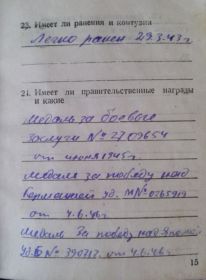 23. Имеет ли ранения и контузии
Легко ранен 29.3.43 г.
24. Имеет ли правительственные награды
и какие
медаль за боевые
заслуги № 2709654
от июня 1945 г.
медаль за победу над
Германией уд. № 0265919
от 4.6.46 г
медаль За победу над Японией
уд. Б № 390717 от 4.6.46 г.
15